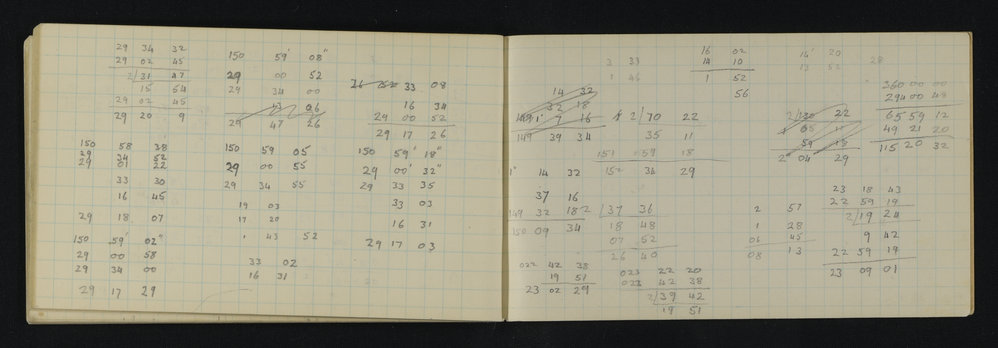 29 34 32
29 02 45
2/31 47
15 54
29 02 45
29 20 9
150 58 38
29 34 52
29 01 22
33 30
16 45
29 18 07
150 59' 02"
29 00 58
29 34 00
29 17 29
150 59' 08"
29 00 52
29 34 00
26
29 47 26
150 59 05
29 00 55
29 34 55
19 03
17 20
1 43 52
33 02
16 31
26 33 08
16 34
29 00 52
29 17 26
150 59' 18"
29 00' 32"
29 33 35
33 03
16 31
29 17 03
14 32
32 18
7 16
149 39 34
14 32
37 16
149 32 18
150 09 34
022 42 38
19 51
23 02 29
3 33
1 46
2/70 22
35 11
151 59 18
152 34 29
2/37 36
18 48
07 52
26 40
023 22 20
023 42 38
2/39 42
19 51
16 02
14 10
1 52
56
14' 20
13 52
28
22
59 18
2 04 29
2 57
1 28
45
08 13
360 00 00
294 00 48
65 59 12
49 21 20
115 20 32
23 18 43
22 59 19
2/19 24
9 42
22 59 19
23 09 01